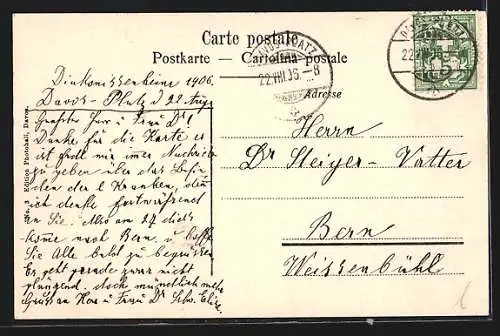 Carte postale
Postkarte — Cartolina postale
Adresse
DAVOS-PLATZ
22.VIII.06.-8
22.VIII.06
Diakonissenheim 1906.
Davos-Platz d 22 Aug
Geehrter Herr u Frau Dr!
Danke für die Karte es
ist mir immer Nachricht
zu geben über das Befin
den der l Kranken, den
ich denke fortwährend
an Sie. Also am 24 dies
komme nach Bern u hoffe
Sie Alle bald zu begrüssen
Es geht gerade zwar nicht
glänzend. doch mündlich mehr
Gruss an Herr u Frau Dr Schw. Elise
Herrn
Dr Steiger-Vatter
Bern
Weissenbühl
Edition Photohall, Davos.